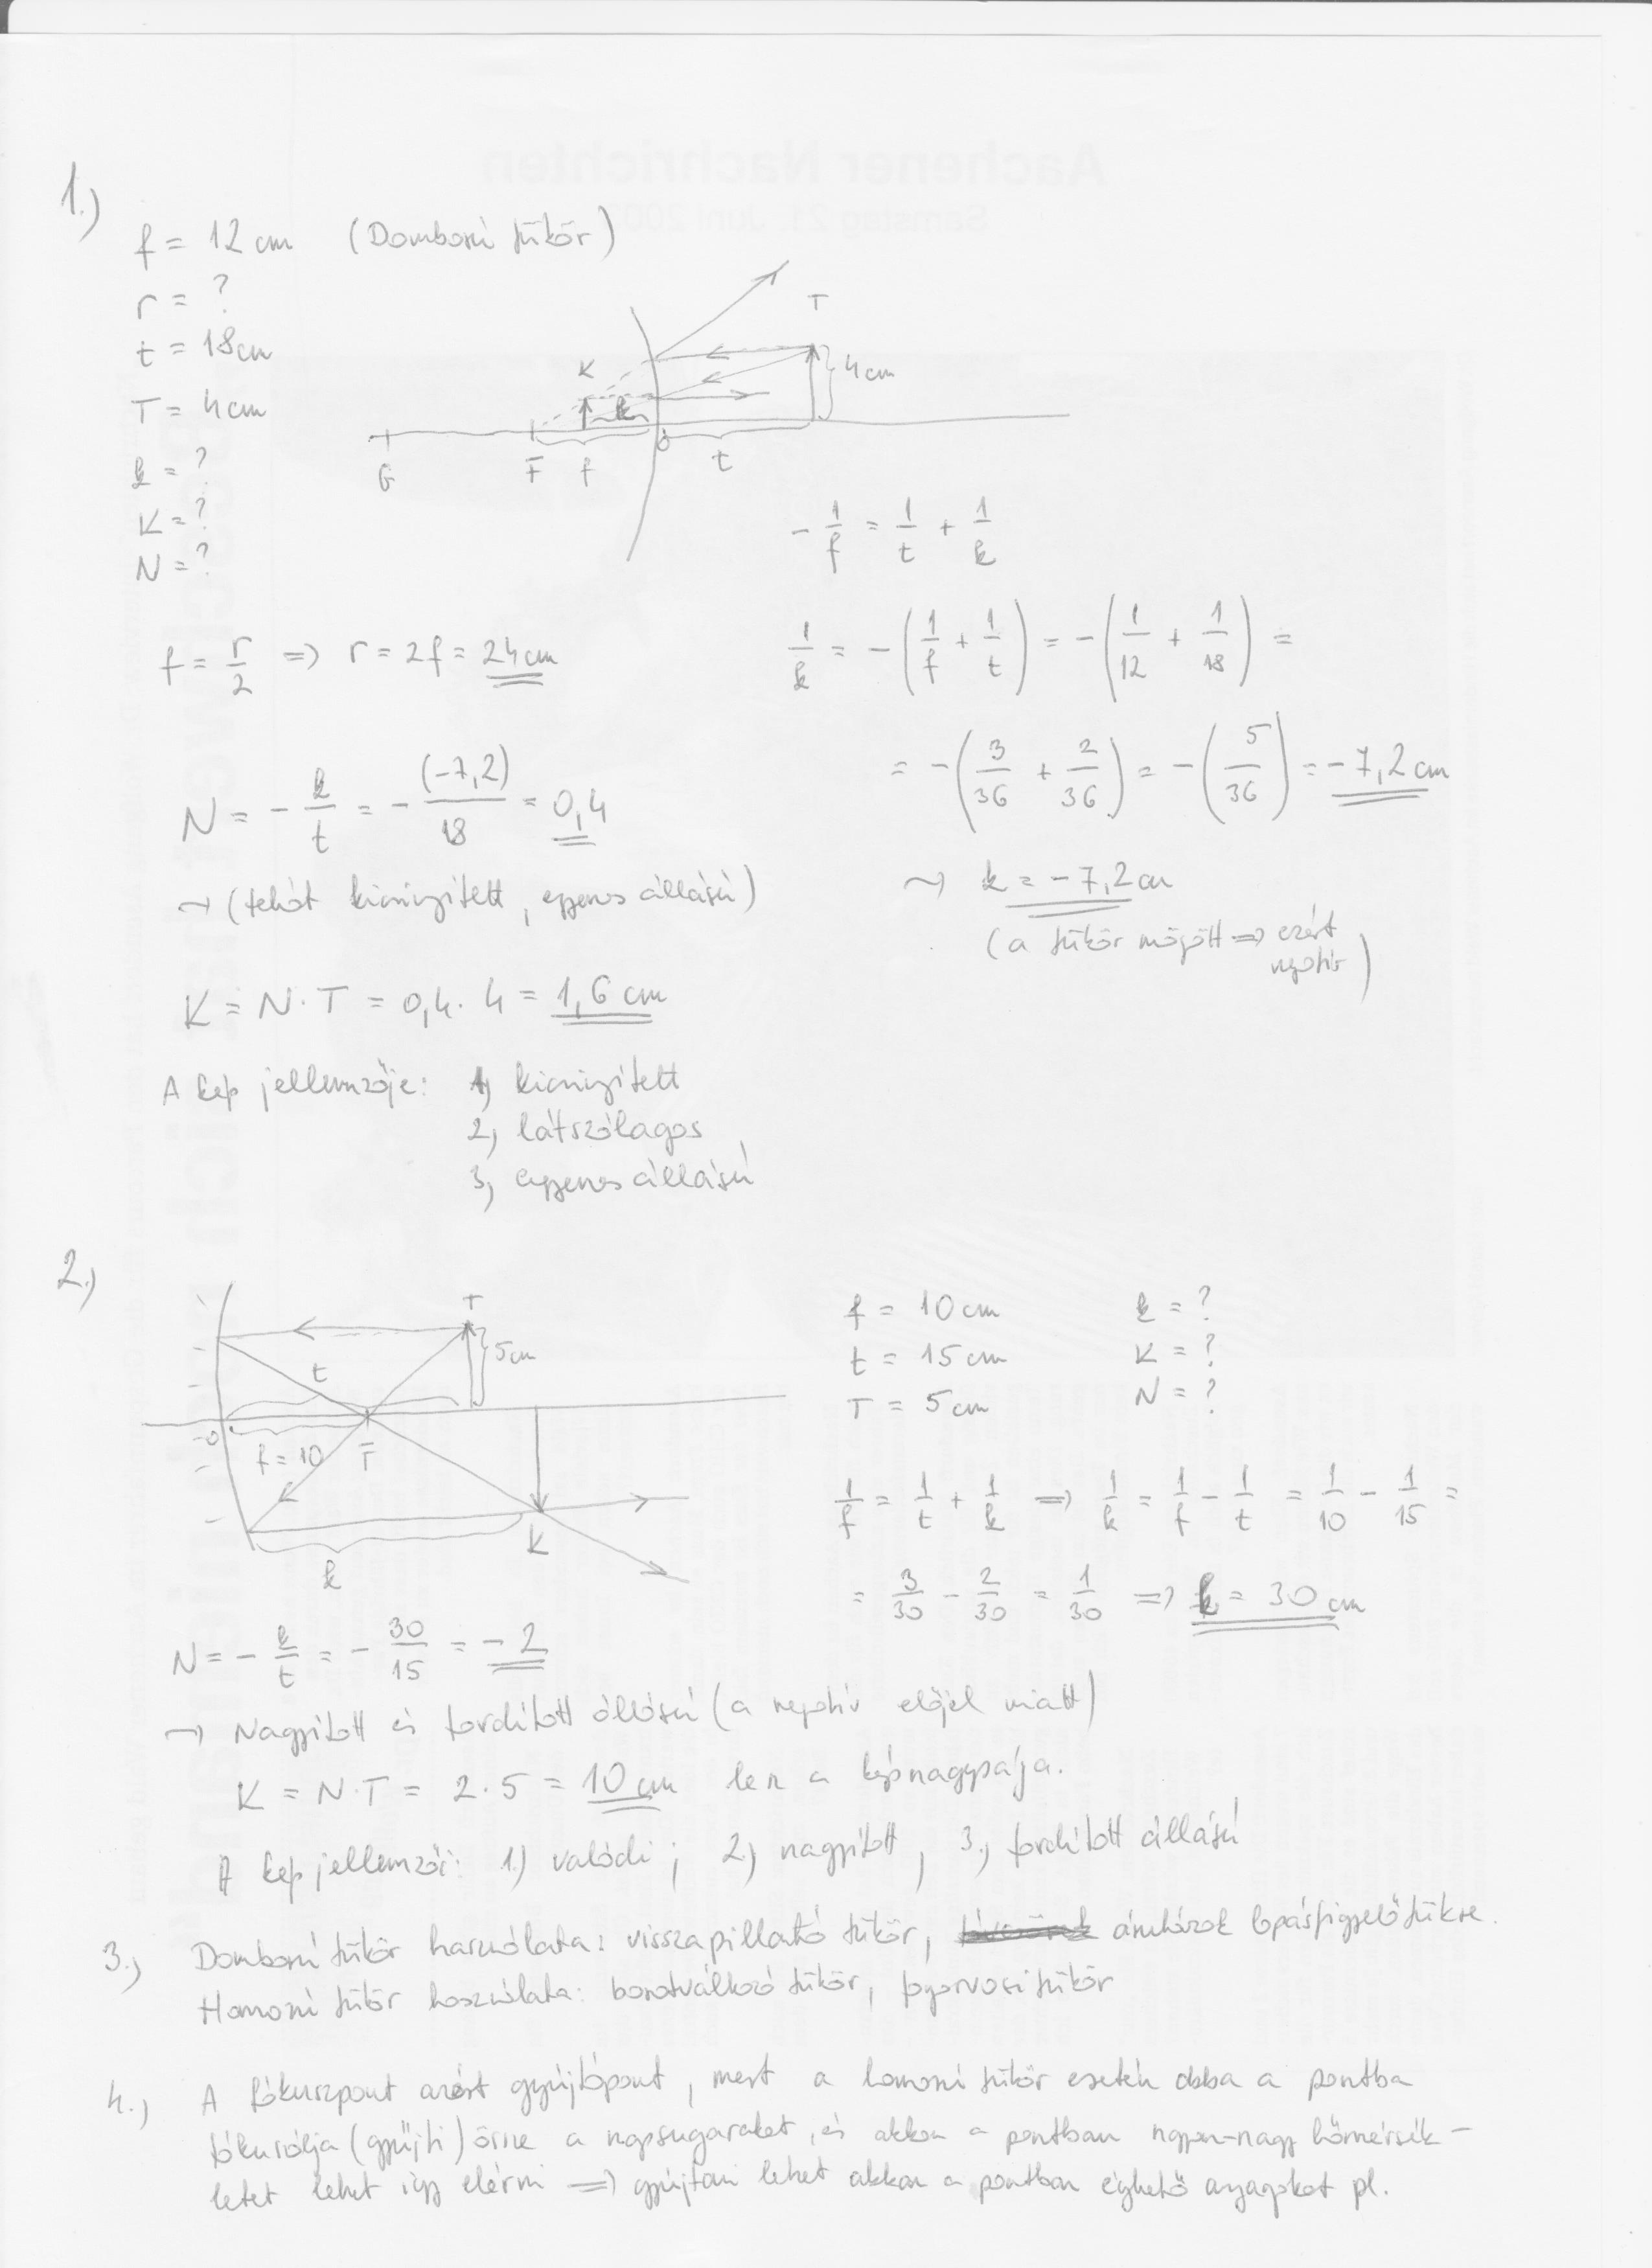 1.)
f = 12 cm (Domború tükör)
r = ?
t = 18 cm
T = 4 cm
k = ?
K = ?
N = ?
T
K
4 cm
k
G F f O t
-1/f = 1/t + 1/k
f = r/2 => r = 2f = 24 cm
1/k = -(1/f + 1/t) = -(1/12 + 1/18) =
= -(3/36 + 2/36) = -(5/36) = -7,2 cm
N = -k/t = -(-7,2)/18 = 0,4
→ k = -7,2 cm
→ (tehát kicsinyített, egyenes állású)
(a tükör mögött => ezért
negatív)
K = N·T = 0,4·4 = 1,6 cm
A kép jellemzője: 1) kicsinyített
2) látszólagos
3) egyenes állású
2.)
T
5 cm
t
O f = 10 F
K
k
f = 10 cm k = ?
t = 15 cm K = ?
T = 5 cm N = ?
1/f = 1/t + 1/k => 1/k = 1/f - 1/t = 1/10 - 1/15 =
= 3/30 - 2/30 = 1/30 => k = 30 cm
N = -k/t = -30/15 = -2
→ Nagyított és fordított állású (a negatív előjel miatt)
K = N·T = 2·5 = 10 cm lesz a kép nagysága.
A kép jellemzői: 1.) valódi; 2.) nagyított, 3.) fordított állású
3.) Domború tükör használata: visszapillantó tükör, áruházak lopásfigyelő tükre.
Homorú tükör használata: borotválkozó tükör, fogorvosi tükör
4.) A fókuszpont azért gyújtópont, mert a homorú tükör esetén abba a pontba
fókuszálja (gyűjti) össze a napsugarakat, és abban a pontban nagyon-nagy hőmérsék-
letet lehet így elérni => gyújtani lehet abban a pontban éghető anyagokat pl.
Aachener Nachrichten
Samstag 21. Juni 200